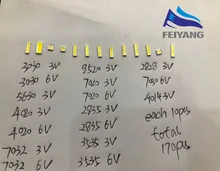 FEIYANG
3030 3V
3030 6V
5630 3V
4020 3V
4020 6V
7032 3V
7032 6V
8520 3V
7020 3V
7020 6V
2835 3V
2835 6V
3535 3V
3535 6V
2828 3V
7020 6V
4014 3V
each 10pcs
total
170pcs